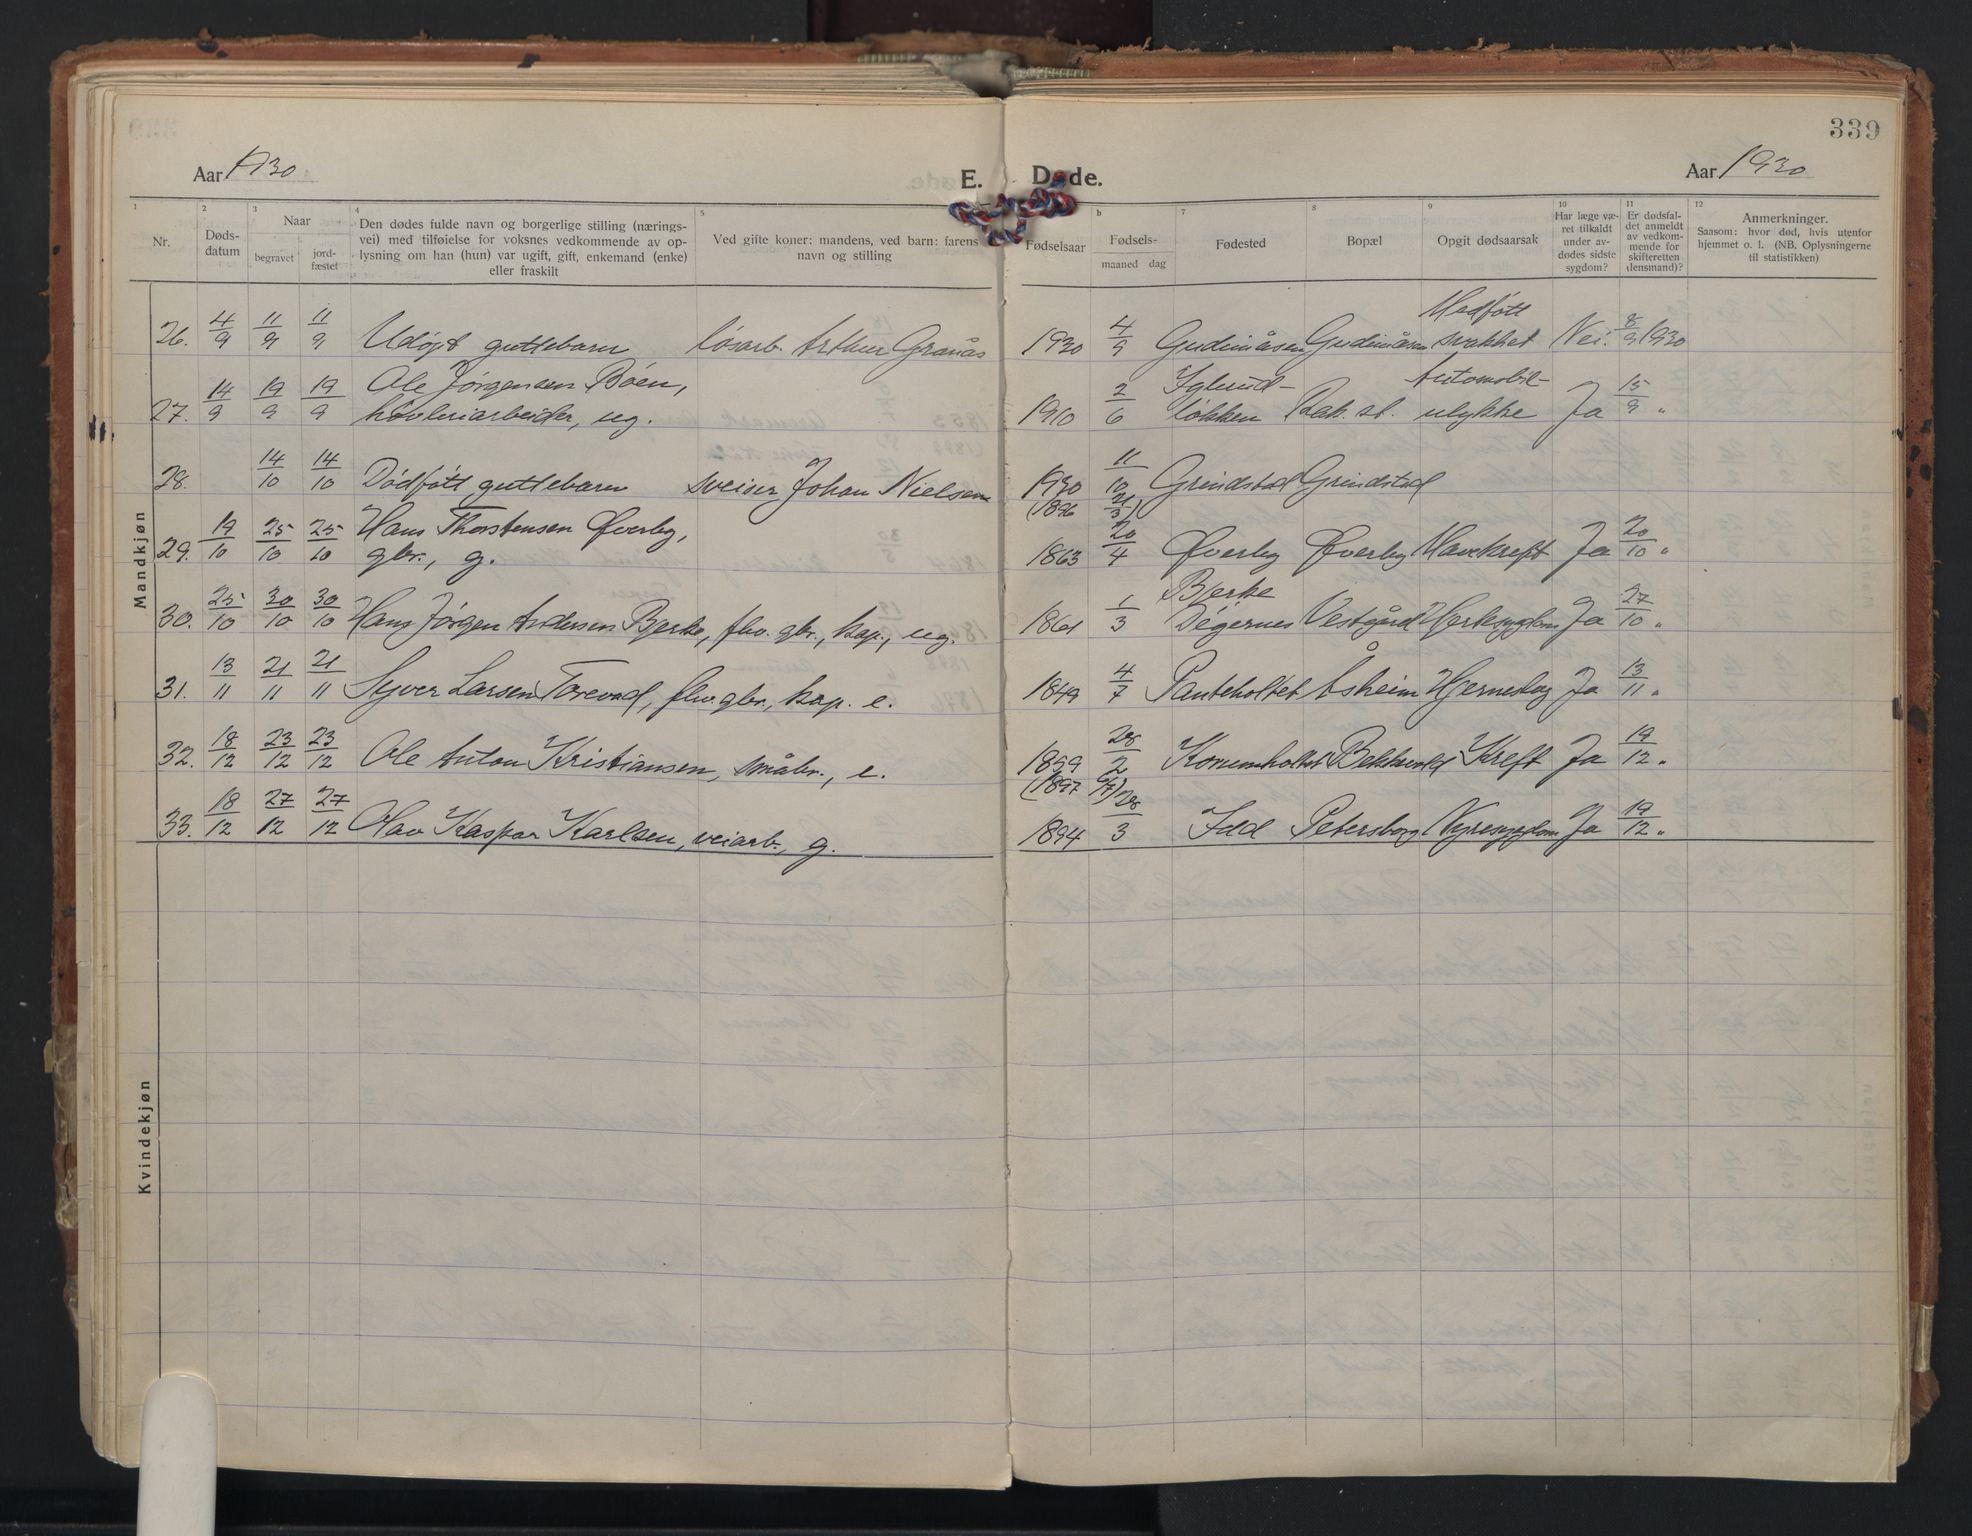 339
Aar 1930 E. Døde. Aar 1930
1 2 3 4 5 6 7 8 9 10 11 12
Nr.
Døds-
datum
Naar
begravet
jord-
fæstet
Den dødes fulde navn og borgerlige stilling (nærings-
vei) med tilføielse for voksnes vedkommende av op-
lysning om han (hun) var ugift, gift, enkemand (enke)
eller fraskilt
Ved gifte koner: mandens, ved barn: farens
navn og stilling
Fødselsaar
b
Fødsels-
maaned dag
Fødested
Bopæl
Opgit dødsaarsak
Har læge væ-
ret tilkaldt
under av-
dødes sidste
sygdom?
Er dødsfal-
det anmeldt
av vedkom-
mende for
skifteretten
(lensmand)?
Anmerkninger.
Saasom: hvor død, hvis utenfor
hjemmet o. l. (NB. Oplysningerne
til statistikken)
Mandkjøn
Medfött
26. 4/9 11/9 11/9 Udøpt guttebarn løsarb. Arthur Granås 1930 4/9 Gudimåsen Gudimåsen svakhet Nei. 8/9 1930
Ole Jørgensen Böen, Iglerud- Automobil-
27. 14/9 19/9 19/9 høvleriarbeider, ug. 1910 2/6 løkken Rak. st. ulykke Ja 15/9 "
28. 14/10 14/10 Dödfött guttebarn sveiser Johan Nielsen 1930 11/10 Grindstad Grindstad
(1896 21/3)
Hans Thorstensen Øverby,
29. 19/10 25/10 25/10 gbr., g. 1863 20/4 Øverby Øverby Mavekreft Ja 20/10 "
Bjerke
30. 25/10 30/10 30/10 Hans Jørgen Andersen Bjerke, fhv. gbr., kap., ug. 1861 1/3 Degernes Vestgård Hjertesygdom Ja 27/10 "
31. 13/11 21/11 21/11 Syver Larsen Torevad, fhv. gbr., kap. e. 1849 4/7 Panteholtet Åsheim Hjerneslag Ja 13/11 "
32. 18/12 23/12 23/12 Ole Anton Kristiansen, småbr., e. 1859 28/2 Kornmholtet Bekkevold Kreft Ja 19/12 "
(1897 6/7)
33. 18/12 27/12 27/12 Olav Kaspar Karlsen, veiarb., g. 1894 28/3 Idd Petersborg Nyresygdom Ja 19/12 "
Kvindekjøn